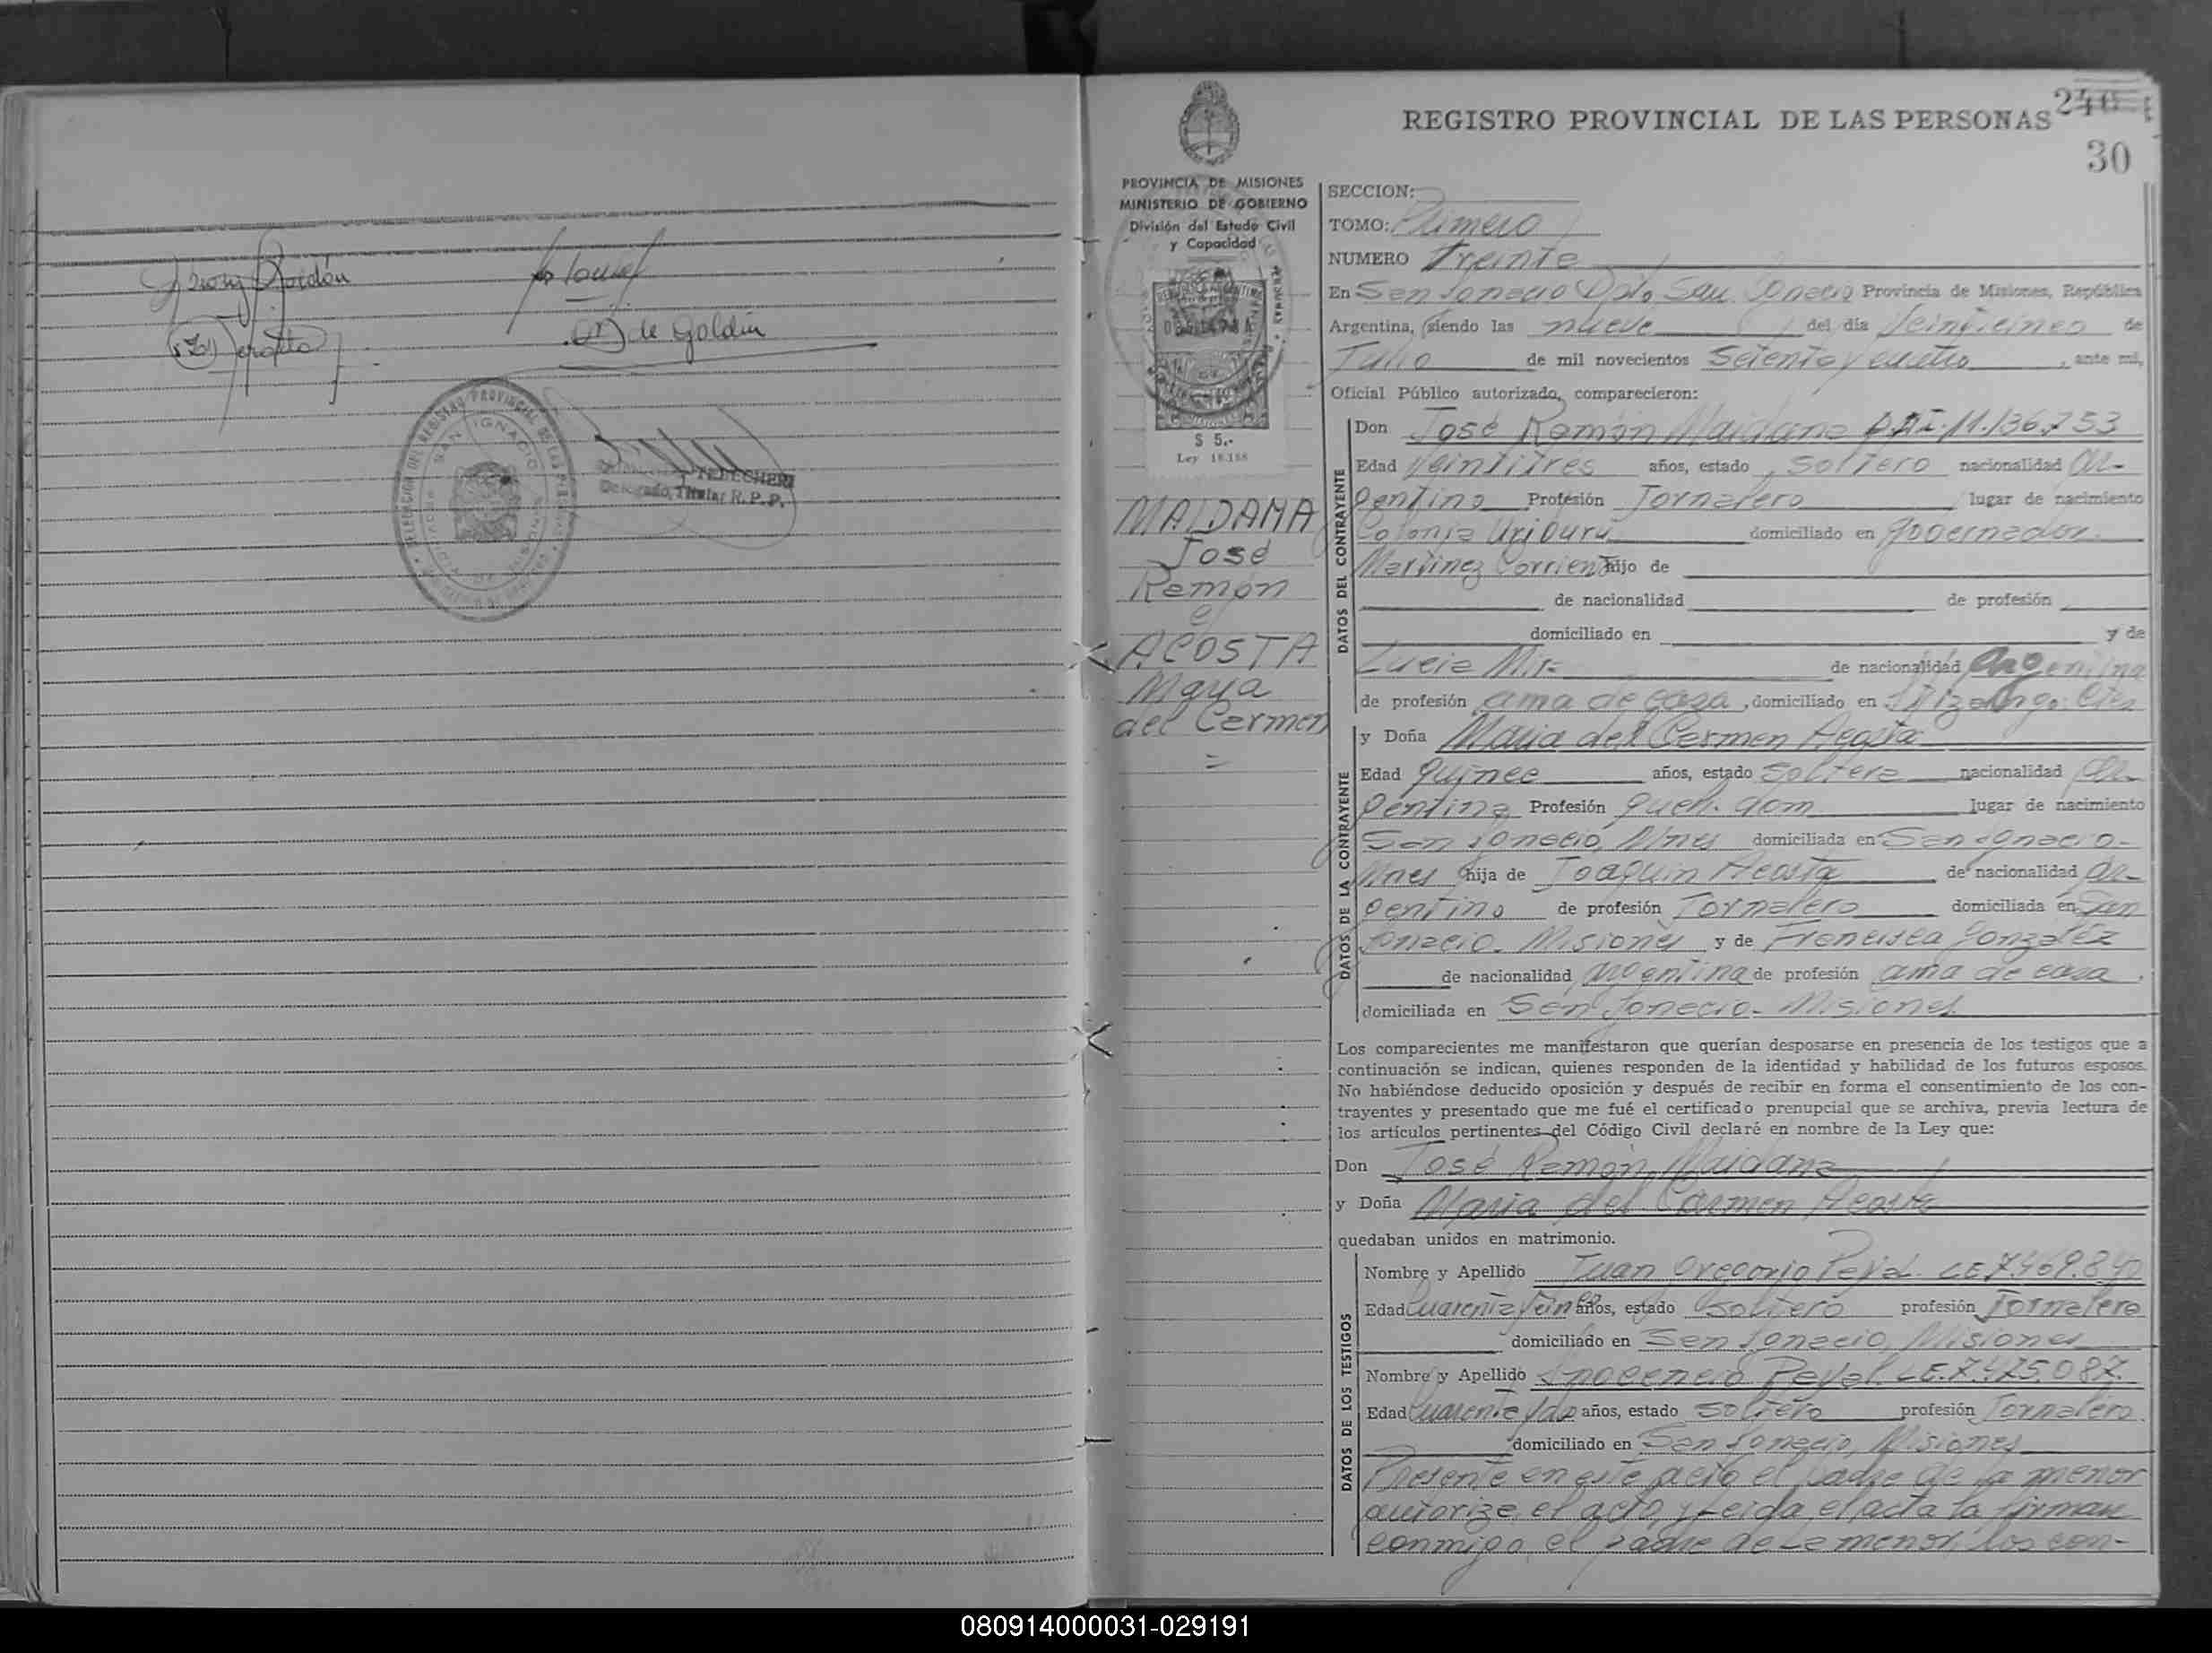 de Goldin
DELEGACION DEL REGISTRO PROVINCIAL DE LAS PERSONAS
SAN IGNACIO
TELLECHEA
Delegado Titular R.P.P.
240
REGISTRO PROVINCIAL DE LAS PERSONAS
30
PROVINCIA DE MISIONES
MINISTERIO DE GOBIERNO
División del Estado Civil
y Capacidad
$ 5.-
Ley 18.188
MAIDANA
José
Ramón
e/
ACOSTA
Maria
del Carmen
=
SECCION:
TOMO: Primero
NUMERO Treinte
En San Ignacio Dpto San Ignacio Provincia de Misiones, República
Argentina, siendo las nueve del día Veinticinco de
Julio de mil novecientos Setenta y cuatro, ante mí,
Oficial Público autorizado, comparecieron:
DATOS DEL CONTRAYENTE
Don José Ramón Maidana D.N.I. 11.136.753
Edad Veintitres años, estado Soltero nacionalidad Ar-
gentino Profesión Jornalero lugar de nacimiento
Colonia Uriburu domiciliado en Governador
Martinez Corrient hijo de
de nacionalidad de profesión
domiciliado en y de
Lucia de nacionalidad Argentina
de profesión ama de casa, domiciliado en
DATOS DE LA CONTRAYENTE
y Doña Maria del Carmen Acosta
Edad Quince años, estado Soltera nacionalidad Ar-
gentina Profesión Queh. dom lugar de nacimiento
San Ignacio, Mnes domiciliada en San Ignacio-
Mnes hija de Joaquin Acosta de nacionalidad Ar-
gentino de profesión Jornalero domiciliada en San
Ignacio- Misiones y de Francisca Gonzalez
de nacionalidad Argentina de profesión ama de casa.
domiciliada en San Ignacio- Misiones
Los comparecientes me manifestaron que querían desposarse en presencia de los testigos que a
continuación se indican, quienes responden de la identidad y habilidad de los futuros esposos.
No habiéndose deducido oposición y después de recibir en forma el consentimiento de los con-
trayentes y presentado que me fué el certificado prenupcial que se archiva, previa lectura de
los artículos pertinentes del Código Civil declaré en nombre de la Ley que:
Don José Ramón Maidana
y Doña Maria del Carmen Acosta
quedaban unidos en matrimonio.
DATOS DE LOS TESTIGOS
Nombre y Apellido Juan Gregorio L.E.
Edad Cuarenta y cinco años, estado soltero profesión Jornalero
domiciliado en San Ignacio, Misiones
Nombre y Apellido Inocencio L.E. 7.475.087.
Edad Cuarenta y dos años, estado soltero profesión Jornalero.
domiciliado en San Ignacio, Misiones
Presente en este acto el padre de la menor
autorize el acto, y Leida el acta la firman
conmigo, el padre de La menor, los con-
080914000031-029191